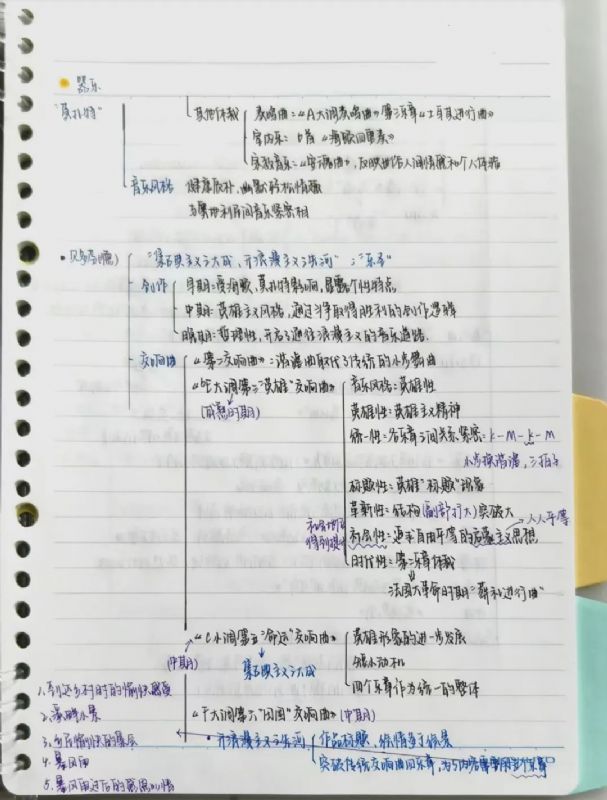 器乐
"莫扎特"
其他体裁 奏鸣曲：《A大调奏鸣曲》第三乐章《土耳其进行曲》
室内乐：6首《海顿四重奏》
宗教音乐：《安魂曲》，反映世俗人间情感和个人体验
音乐风格 健康质朴，幽默轻松情趣
与奥地利民间音乐紧密相
贝多芬(德) "集古典主义之大成，开浪漫主义之先河"："乐圣"
创作 早期：受海顿，莫扎特影响，显露个性特点
中期：英雄主义风格，通过斗争取得胜利的创作逻辑
晚期：哲理性，开启了通往浪漫主义的音乐道路.
交响曲 《第二交响曲》：谐谑曲取代了传统的小步舞曲
《♭E大调第三"英雄"交响曲》 音乐风格：英雄性
(成熟时期) 英雄性：英雄主义精神
统一性：各乐章之间关系紧密：k-M-k-M
小步换谐谑，三拍子
标题性："英雄"标题
革新性：结构(副部扩大)突破大
社会性：追求自由平等的启蒙主义思想 → 人人平等
时代性：第二乐章体裁
法国大革命时期"葬礼进行曲"
《c小调第五"命运"交响曲》 英雄形象的进一步发展
(中期) 集古典主义之大成 缩小动机
四个乐章作为统一的整体
《F大调第六"田园"交响曲》(中期)
开浪漫主义之先河 作品标题，抒情多于绘景
突破传统交响曲四乐章，
1.到达乡村时的愉快感受
2.溪畔小景
3.乡民愉快的集会
4.暴风雨
5.暴风雨过后的